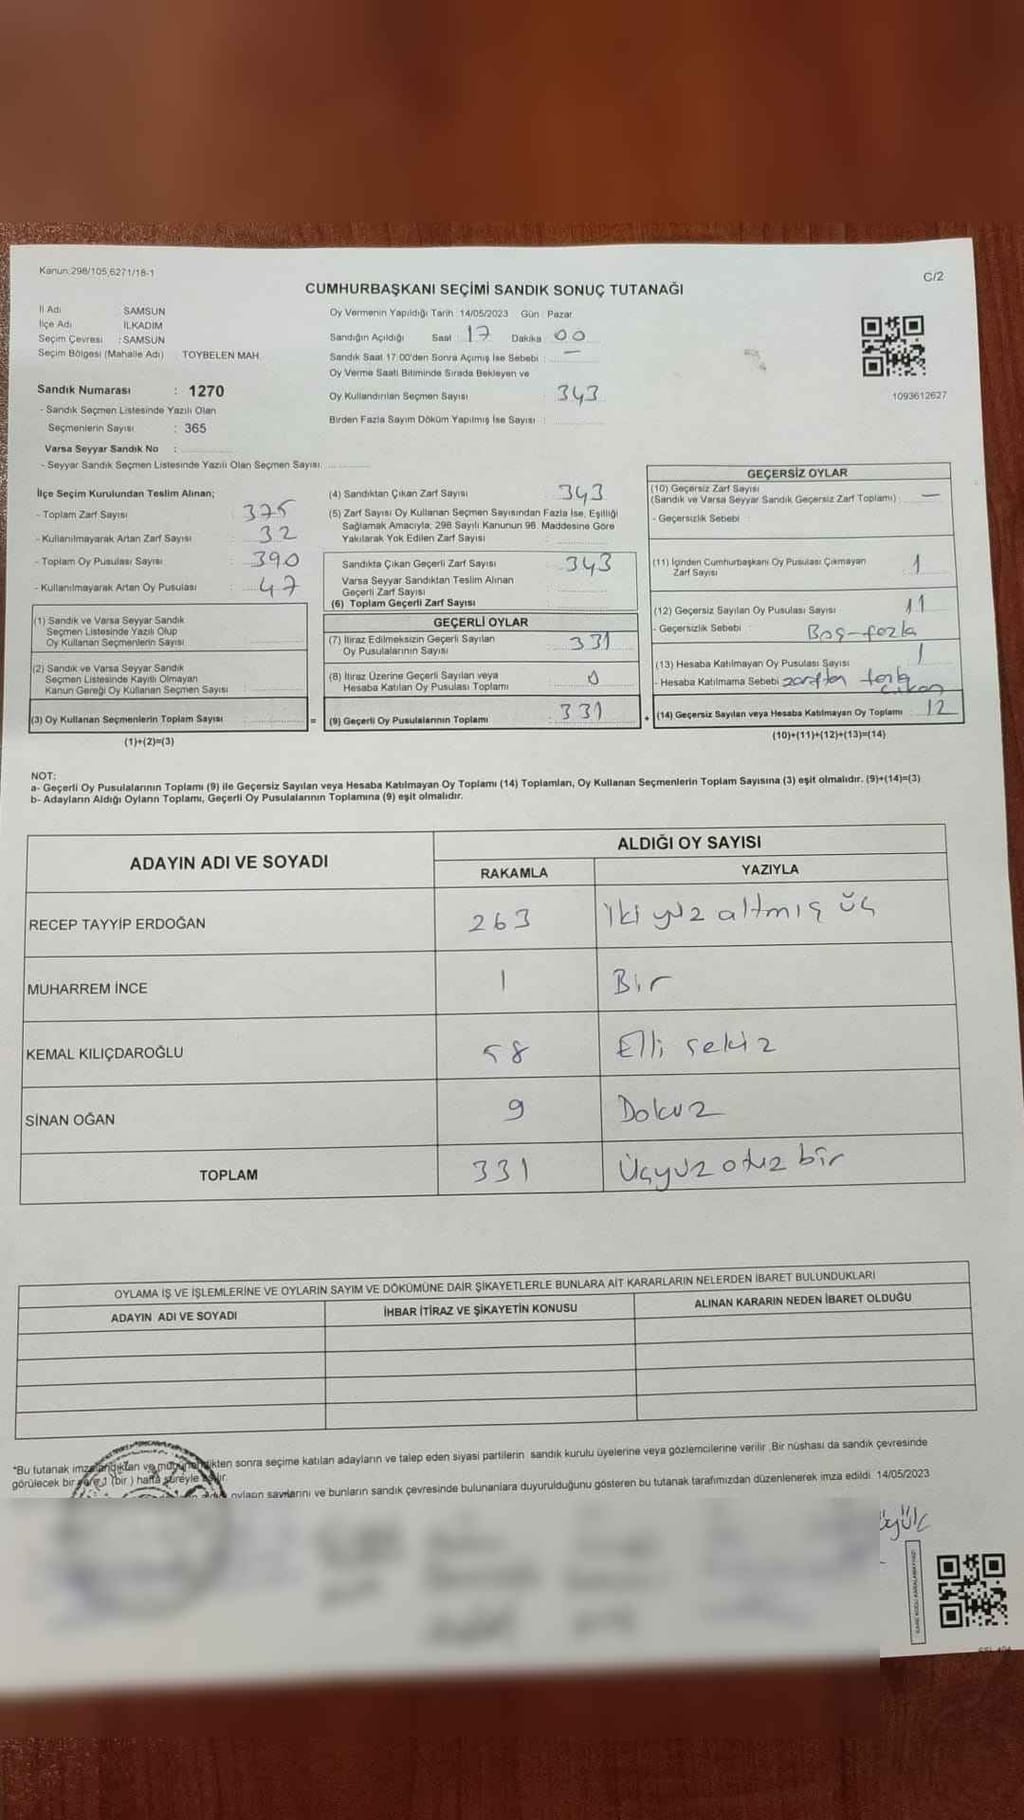 Kanun:298/105,6271/18-1
C/2
CUMHURBAŞKANI SEÇİMİ SANDIK SONUÇ TUTANAĞI
İl Adı SAMSUN
İlçe Adı İLKADIM
Seçim Çevresi : SAMSUN
Seçim Bölgesi (Mahalle Adı) TOYBELEN MAH.
Sandık Numarası : 1270
- Sandık Seçmen Listesinde Yazılı Olan
Seçmenlerin Sayısı : 365
Varsa Seyyar Sandık No :
- Seyyar Sandık Seçmen Listesinde Yazılı Olan Seçmen Sayısı:
Oy Vermenin Yapıldığı Tarih 14/05/2023 Gün : Pazar
Sandığın Açıldığı Saat : 17 Dakika : 00
Sandık Saat 17:00'den Sonra Açımış İse Sebebi : —
Oy Verme Saati Bitiminde Sırada Bekleyen ve
Oy Kullandırılan Seçmen Sayısı 343
Birden Fazla Sayım Döküm Yapılmış İse Sayısı :
1093612627
İlçe Seçim Kurulundan Teslim Alınan;
- Toplam Zarf Sayısı 375
- Kullanılmayarak Artan Zarf Sayısı 32
- Toplam Oy Pusulası Sayısı 390
- Kullanılmayarak Artan Oy Pusulası 47
(1) Sandık ve Varsa Seyyar Sandık
Seçmen Listesinde Yazılı Olup
Oy Kullanan Seçmenlerin Sayısı
(2) Sandık ve Varsa Seyyar Sandık
Seçmen Listesinde Kayıtlı Olmayan
Kanun Gereği Oy Kullanan Seçmen Sayısı
(3) Oy Kullanan Seçmenlerin Toplam Sayısı
(1)+(2)=(3)
(4) Sandıktan Çıkan Zarf Sayısı 343
(5) Zarf Sayısı Oy Kullanan Seçmen Sayısından Fazla İse, Eşitliği
Sağlamak Amacıyla; 298 Sayılı Kanunun 98. Maddesine Göre
Yakılarak Yok Edilen Zarf Sayısı
Sandıkta Çıkan Geçerli Zarf Sayısı 343
Varsa Seyyar Sandıktan Teslim Alınan
Geçerli Zarf Sayısı
(6) Toplam Geçerli Zarf Sayısı
GEÇERLİ OYLAR
(7) İtiraz Edilmeksizin Geçerli Sayılan
Oy Pusulalarının Sayısı 331
(8) İtiraz Üzerine Geçerli Sayılan veya
Hesaba Katılan Oy Pusulası Toplamı 0
= (9) Geçerli Oy Pusulalarının Toplamı 331
GEÇERSİZ OYLAR
(10) Geçersiz Zarf Sayısı
(Sandık ve Varsa Seyyar Sandık Geçersiz Zarf Toplamı) : —
- Geçersizlik Sebebi :
(11) İçinden Cumhurbaşkanı Oy Pusulası Çıkmayan
Zarf Sayısı 1
(12) Geçersiz Sayılan Oy Pusulası Sayısı 11
- Geçersizlik Sebebi : Boş-fazla
(13) Hesaba Katılmayan Oy Pusulası Sayısı 1
- Hesaba Katılmama Sebebi zarftan fazla
çıkan
+ (14) Geçersiz Sayılan veya Hesaba Katılmayan Oy Toplamı 12
(10)+(11)+(12)+(13)=(14)
NOT:
a- Geçerli Oy Pusulalarının Toplamı (9) ile Geçersiz Sayılan veya Hesaba Katılmayan Oy Toplamı (14) Toplamları, Oy Kullanan Seçmenlerin Toplam Sayısına (3) eşit olmalıdır. (9)+(14)=(3)
b- Adayların Aldığı Oyların Toplamı, Geçerli Oy Pusulalarının Toplamına (9) eşit olmalıdır.
ADAYIN ADI VE SOYADI
ALDIĞI OY SAYISI
RAKAMLA YAZIYLA
RECEP TAYYİP ERDOĞAN 263 İki yüz altmış üç
MUHARREM İNCE 1 Bir
KEMAL KILIÇDAROĞLU 58 Elli sekiz
SİNAN OĞAN 9 Dokuz
TOPLAM 331 Üçyüz otuz bir
OYLAMA İŞ VE İŞLEMLERİNE VE OYLARIN SAYIM VE DÖKÜMÜNE DAİR ŞİKAYETLERLE BUNLARA AİT KARARLARIN NELERDEN İBARET BULUNDUKLARI
ADAYIN ADI VE SOYADI İHBAR İTİRAZ VE ŞİKAYETİN KONUSU ALINAN KARARIN NEDEN İBARET OLDUĞU
*Bu tutanak imzalandıktan ve mühürlendikten sonra seçime katılan adayların ve talep eden siyasi partilerin sandık kurulu üyelerine veya gözlemcilerine verilir .Bir nüshası da sandık çevresinde
görülecek bir yere 1 (bir ) hafta süreyle asılır.
oyların sayılarını ve bunların sandık çevresinde bulunanlara duyurulduğunu gösteren bu tutanak tarafımızdan düzenlenerek imza edildi. 14/05/2023